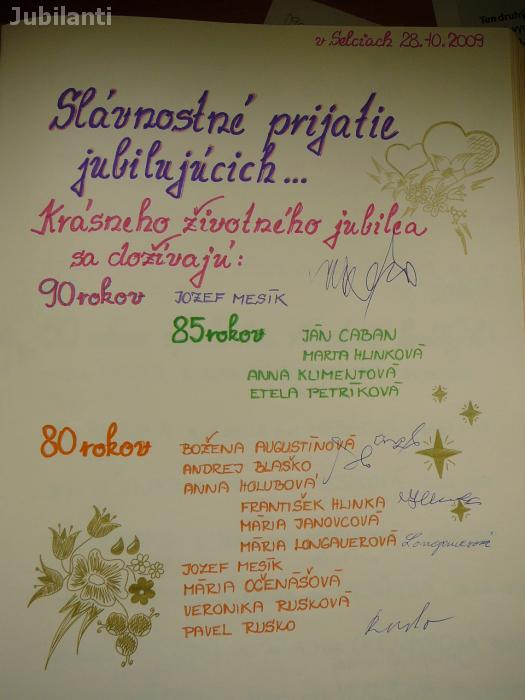 Jubilanti
Ten
v Selciach 28.10.2009
Slávnostné prijatie
jubilujúcich...
Krásneho životného jubilea
sa dožívajú:
90 rokov JOZEF MESÍK
85 rokov JÁN CABAN
MARTA HLINKOVÁ
ANNA KLIMENTOVÁ
ETELA PETRÍKOVÁ
80 rokov BOŽENA AUGUSTÍNOVÁ
ANDREJ BLAŠKO
ANNA HOLUBOVÁ
FRANTIŠEK HLINKA
MÁRIA JANOVCOVÁ
MÁRIA LONGAUEROVÁ Longauerová
JOZEF MESÍK
MÁRIA OČENÁŠOVÁ
VERONIKA RUSKOVÁ
PAVEL RUSKO